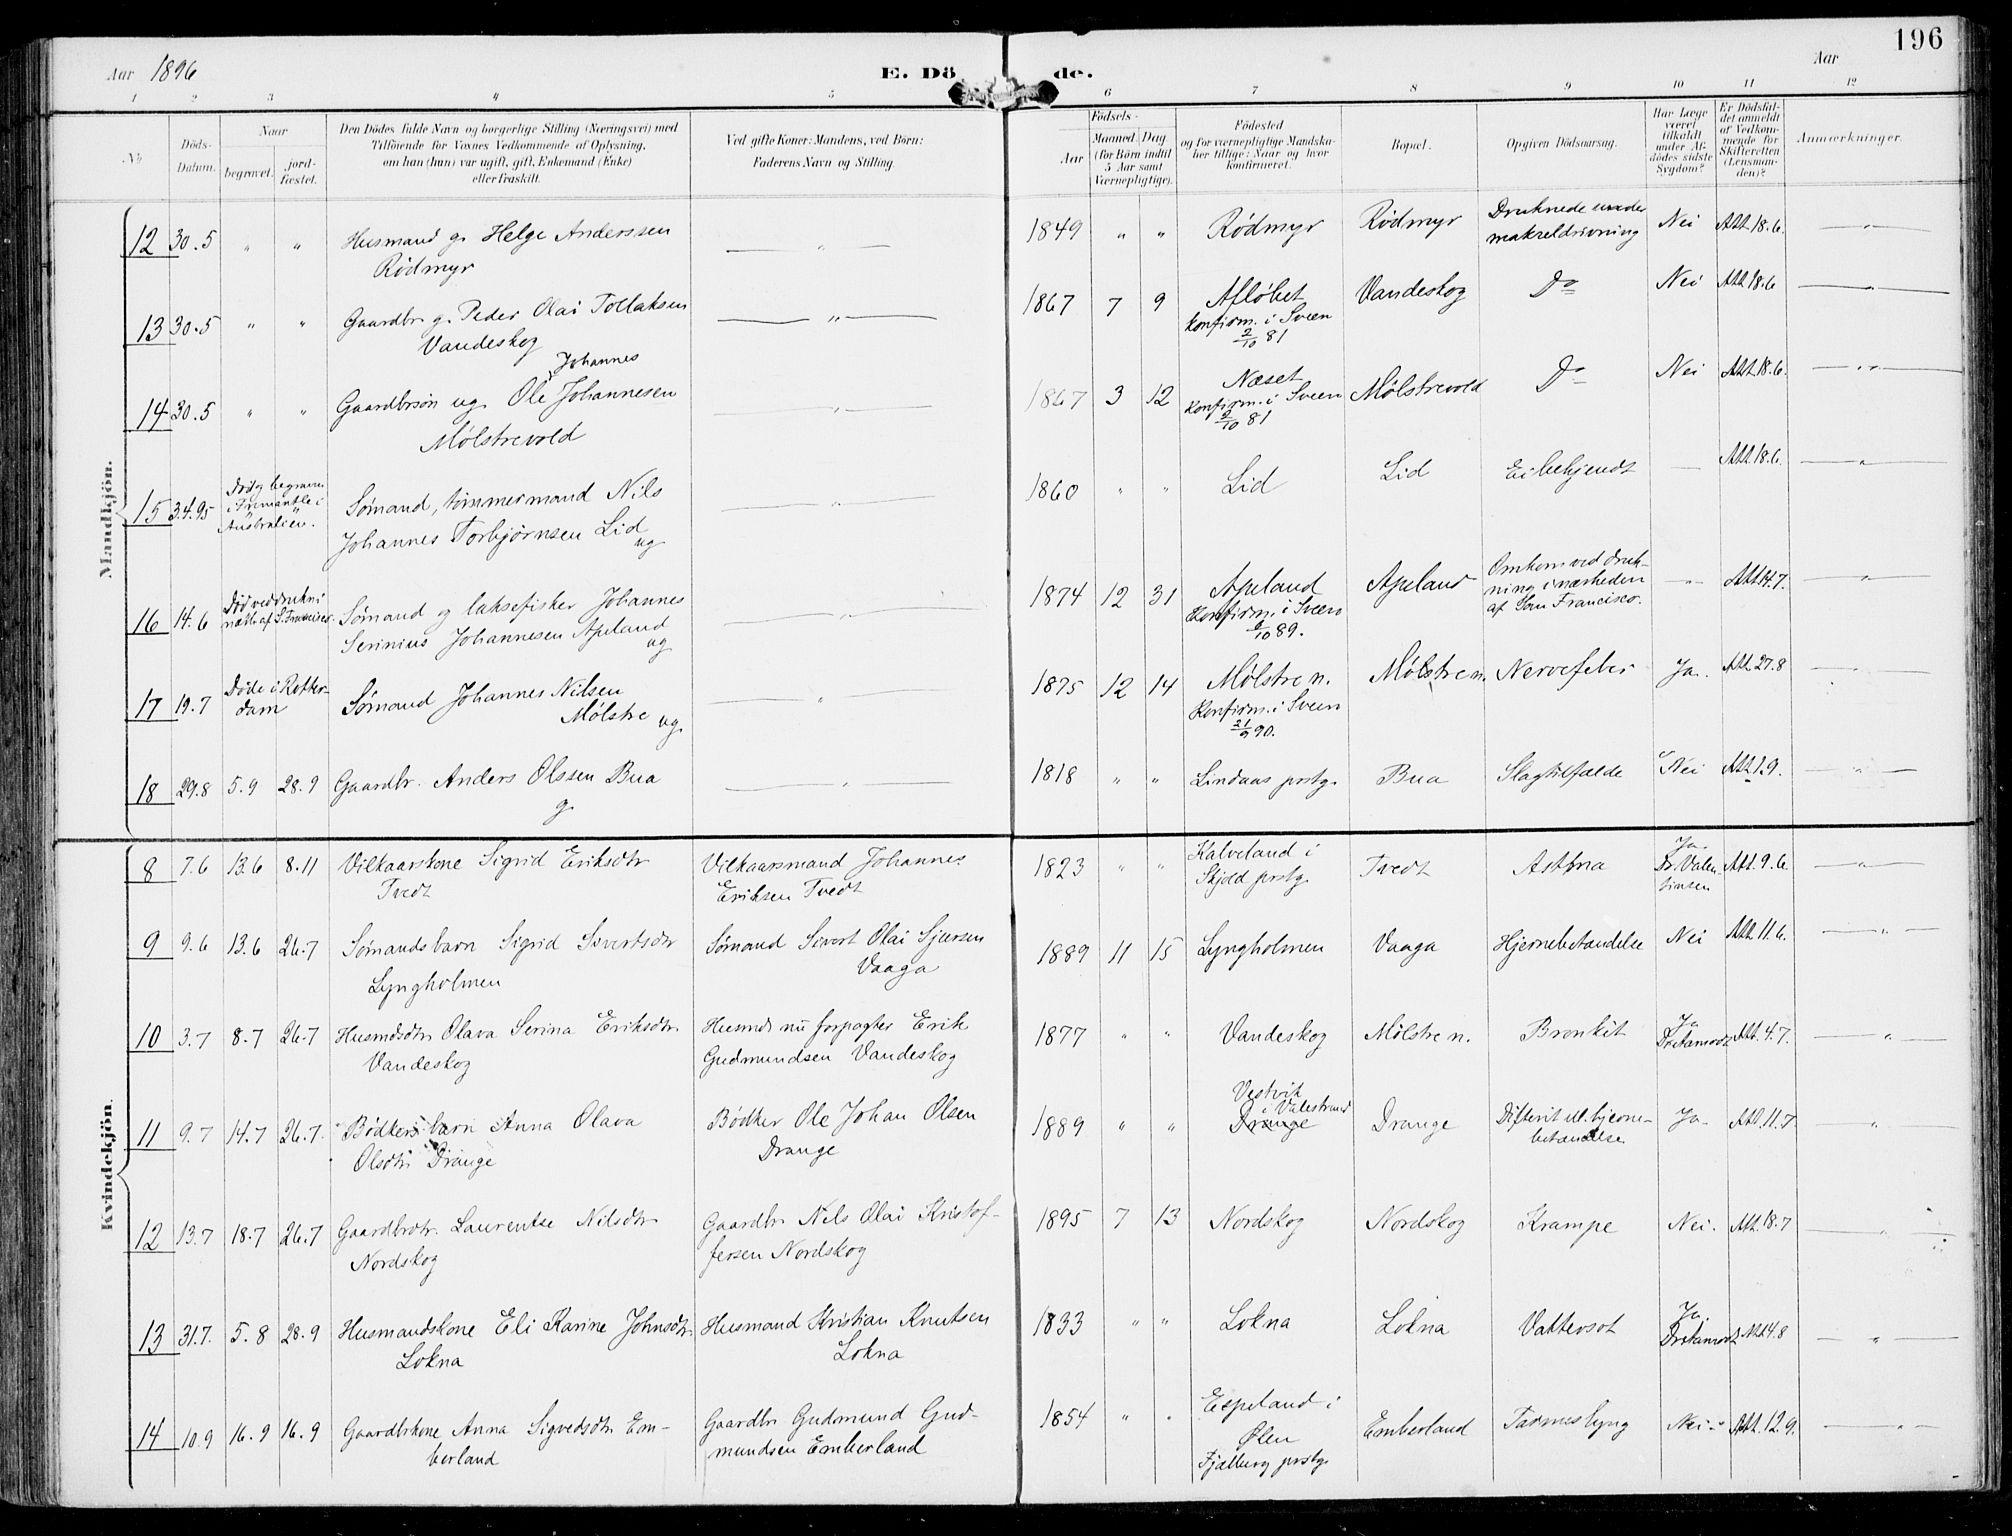 196
Aar 1896
E. Dö de.
Aar
1 2 3 4 5 6 7 8 9 10 11 12
No
Döds-Datum.
Naar
begravet.
jord-fæstet.
Den Dödes fulde Navn og borgerlige Stilling (Næringsvei) med
Tilföiende for Voxnes Vedkommende af Oplysning,
om han (hun) var ugift, gift, Enkemand (Enke)
eller fraskilt.
Ved gifte Koner: Mandens, ved Börn:
Faderens Navn og Stilling.
Födsels-
Aar
Maaned. Dag.
(for Börn indtil
5 Aar samt
Værnepligtige).
Födested
og for værnepligtige Mandska-
ber tillige: Naar og hvor
konfirmeret.
Bopæl.
Opgiven Dödsaarsag.
Har Læge
været
tilkaldt
under Af-
dödes sidste
Sygdom?
Er Dödsfal-
det anmeldt
af Vedkom-
mende for
Skifteretten
(Lensman-
den)?
Anmærkninger.
Mandkjön.
12 30.5 " " Husmand g. Helge Anderssen
Rødmyr
— " — 1849 " " Rødmyr Rødmyr Druknede under
makreldrivning
Nei Att. 18.6. — " —
13 30.5 " " Gaardbr. g. Peder Olai Tollaksen
Vandeskog
— " — 1867 7 9 Afløbet
konfirm. i Sveen
2/10 81
Vandeskog Do Nei Att 18.6 — " —
14 30.5 " " Gaardbrsøn ug. Ole Johannes Johannesen
Mølstrevold
— " — 1867 3 12 Næset
konfirm. i Sveen
2/10 81
Mølstrevold Do Nei Att 18.6. — " —
15 3.4.95 Død og begraven
i Fremantle i
Australien.
Sømand, tømmermand Nils
Johannes Torbjørnsen Lid
ug
— " — 1860 " " Lid Lid Ei bekjendt — Att. 18.6. — " —
16 14.6 Død ved drukn i
nærh. af S. Francisco.
Sømand og laksefisker Johannes
Serinius Johannesen Apeland
ug
— " — 1874 12 31 Apeland
Konfirm. i Sveen
6/10 89.
Apeland Omkom ved druk-
ning i nærheden
af San Francisco.
— " — Att 14.7. — " —
17 19.7 Døde i Rotter-
dam
Sømand Johannes Nilsen
Mølstre ug.
— " — 1875 12 14 Mølstre n.
Konfirm. i Sveen
21/9 90.
Mølstre n. Nervefeber Ja. Att. 27.8 — " —
18 29.8 5.9 28.9 Gaardbr. Anders Olssen Bua
g.
— " — 1818 " " Lindaas prstg. Bua Slagtilfælde Nei Att. 1.9. — " —
Kvindekjön.
8 7.6 13.6 8.11 Vilkaarskone Sigrid Eriksdtr
Tvedt
Vilkaarsmand Johannes
Eriksen Tvedt
1823 " " Kalveland i
Skjold prstg.
Tvedt Astma Ja
Dr. Valen-
tinsen
Att. 9.6. — " —
9 9.6 13.6 26.7 Sømandsbarn Sigrid Sivertsdtr
Lyngholmen
Sømand Sivert Olai Sjursen
Vaaga
1889 11 15 Lyngholmen Vaaga Hjernebetændelse Nei Att. 11.6. — " —
10 3.7 8.7 26.7 Husmdsdtr. Olava Serina Eriksdtr.
Vandeskog
Husmd. nu forpagter Erik
Gudmundsen Vandeskog
1877 " " Vandeskog Mølstre n. Bronkit Ja
Att. 4.7. — " —
11 9.7 14.7 26.7. Bødkersbarn Anna Olava
Olsdtr Drange
Bødker Ole Johan Olsen
Drange
1889 " " Vestvik
i Valestrand
Drange
Drange Difterit ell. hjerne-
betændelse
Ja. Att. 11.7 — " —
12 13.7 18.7 26.7 Gaardbrdtr. Laurentse Nilsdtr
Nordskog
Gaardbr. Nils Olai Kristof-
fersen Nordskog
1895 7 13 Nordskog Nordskog Krampe Nei. Att. 18.7 — " —
13 31.7. 5.8 28.9 Husmandskone Eli Karine Johnsdtr.
Lokna
Husmand Kristian Knutsen
Lokna
1833 " " Lokna Lokna Vattersot Ja.
Att 4.8 — " —
14 10.9 16.9 16.9 Gaardbrkone Anna Sigvedsdtr Em-
berland
Gaardbr. Gudmund Gud-
mundsen Emberland
1854 " " Espeland i
Ølen
Fjelberg prstg.
Emberland Tarmeslyng Nei Att. 12.9. — " —